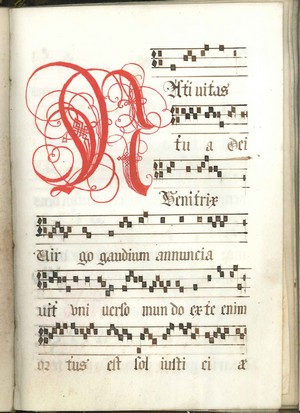 Nati uitas
tu a Dei
Genitrix
Uir go gaudium annuncia
uit vni uerso mun do ex te enim
or tus est sol iusti ci æ